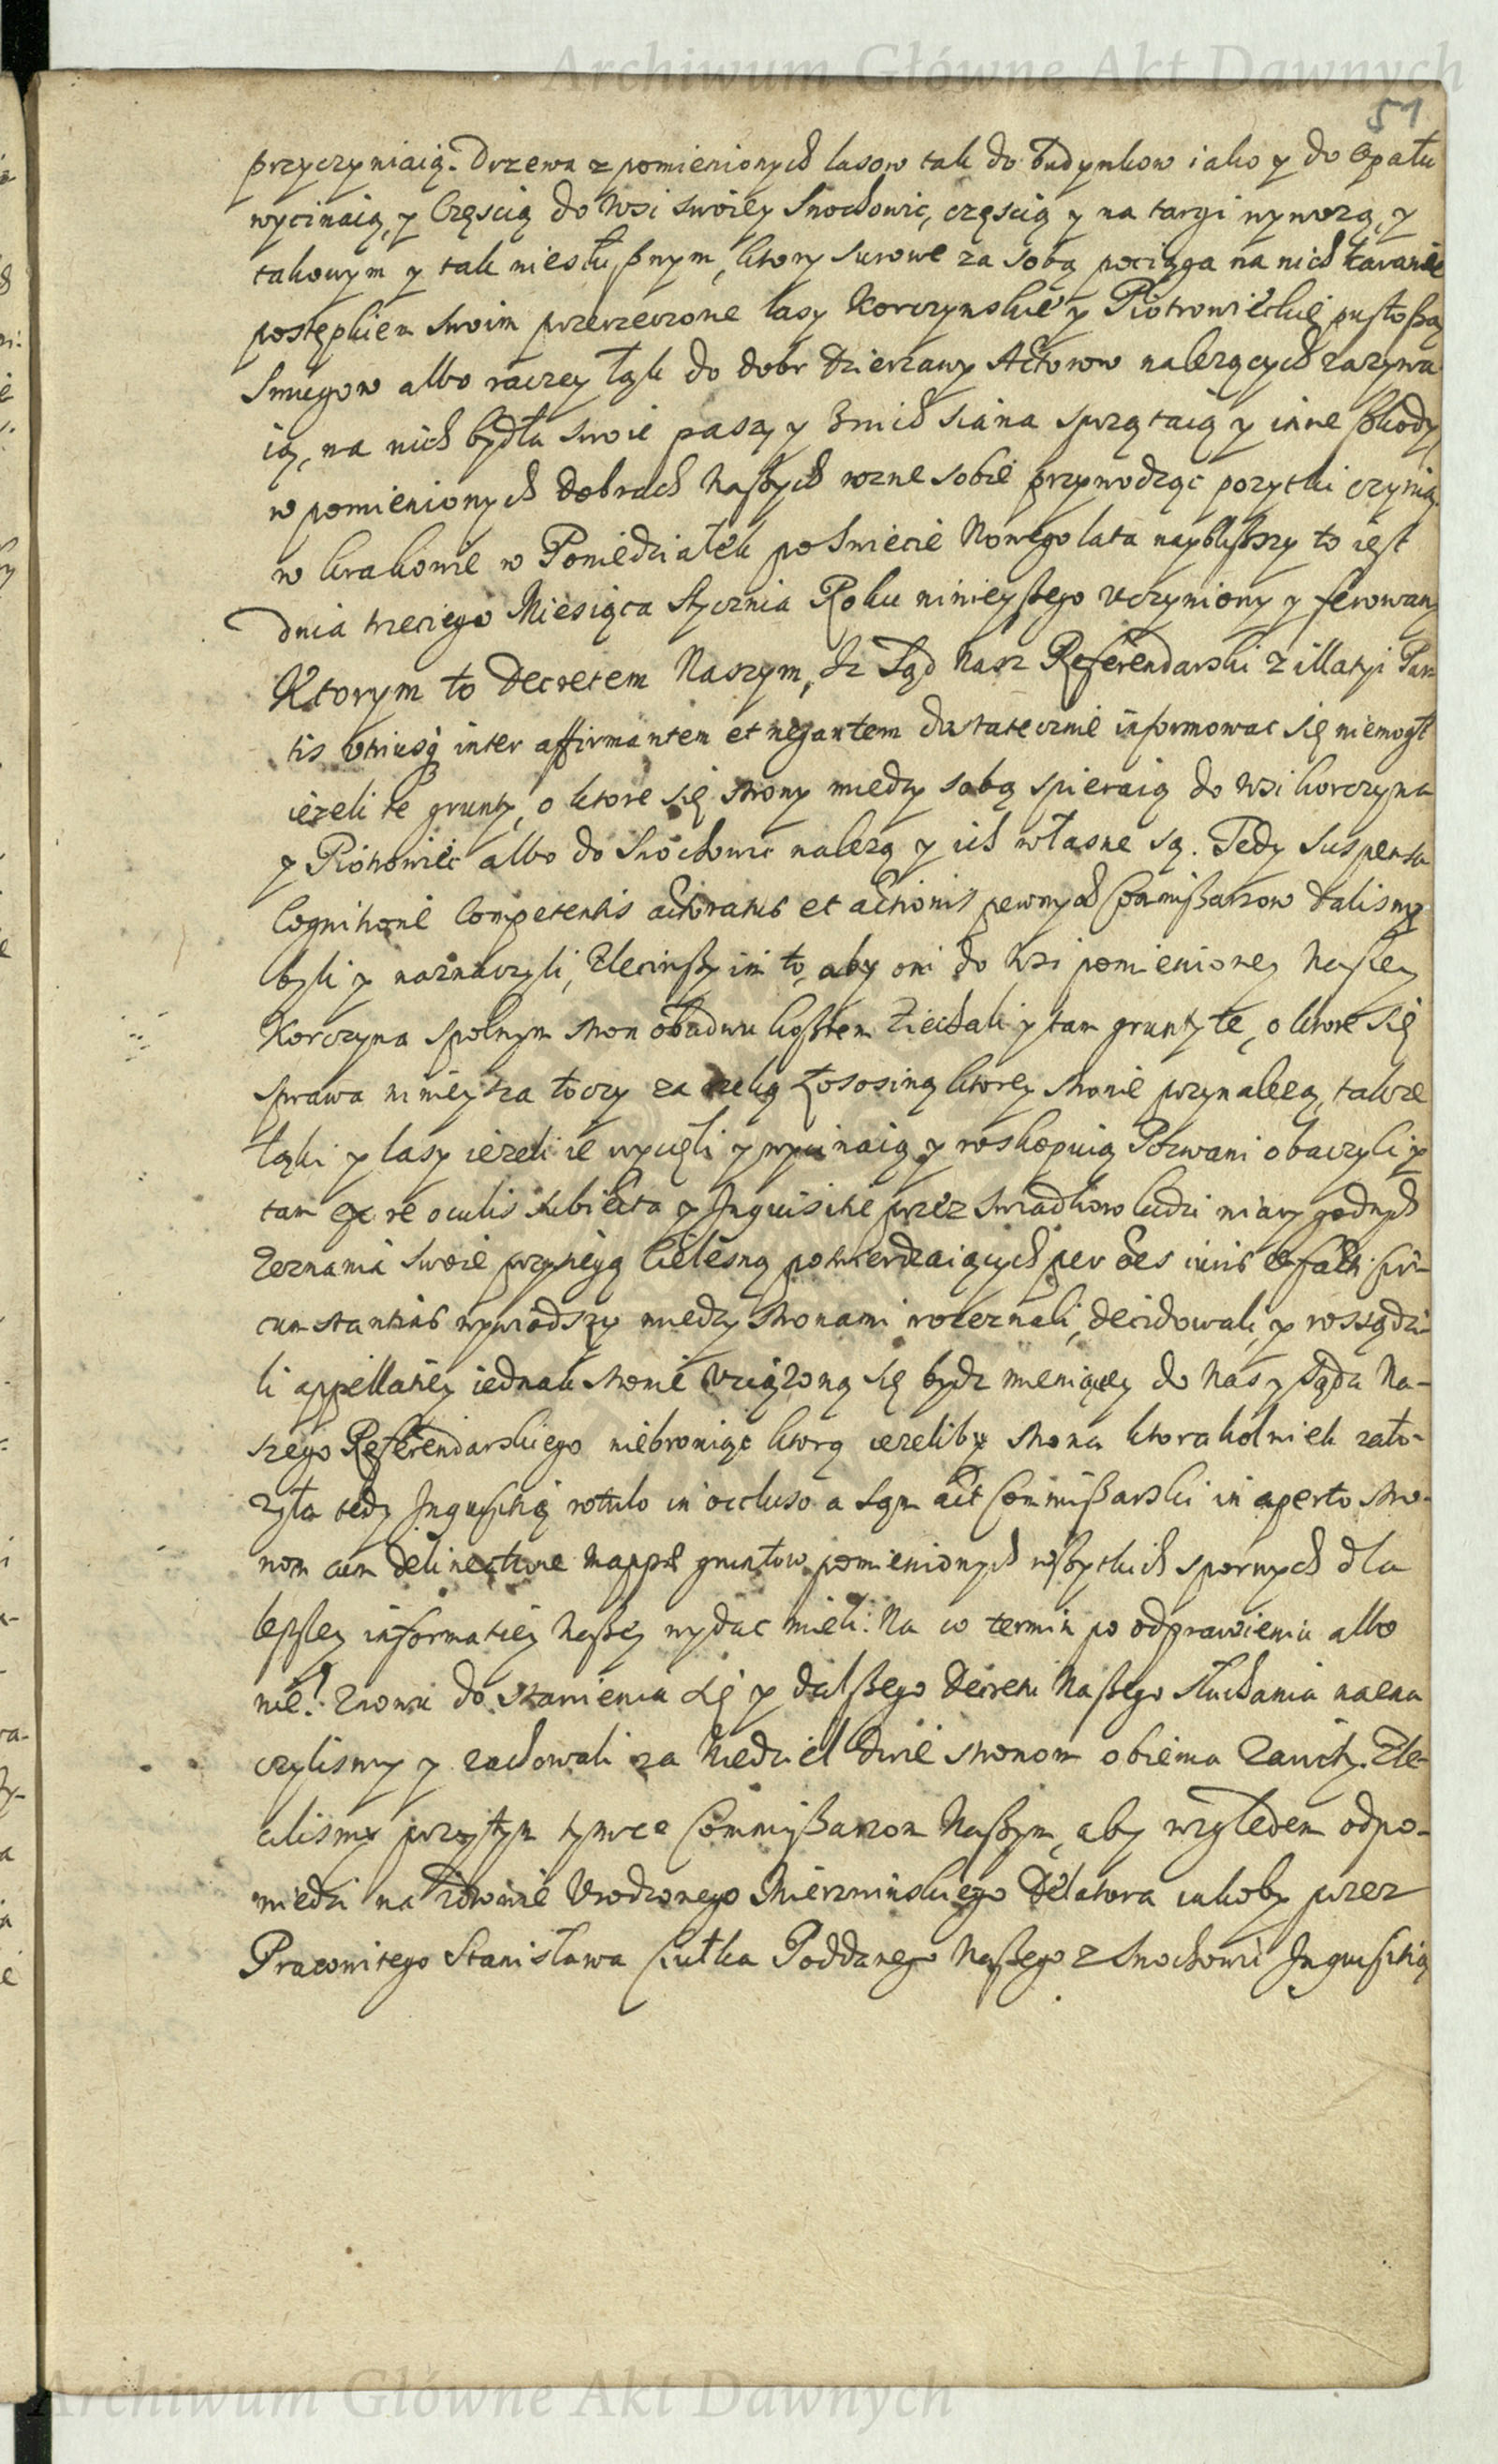 Archiwum Główne Akt Dawnych
51
przyczyniaią. Drzewa z pomienionych lasow tak do Budynkow iako y do Opału
wycinaią, y Częscią do Wsi swoiey Snochowic, częscią y na targi wywożą, y
takowym y tak niesłusznym, ktory surowe za sobą pociąga na nich karanie
postępkiem swoim przerzeczone lasy Korczynskie y Piotrowieckie pustoszą
Smugow albo raczey Łąk do dobr Dzierzawy Actorow nalezących zazywa
ią, na nich bydła swoie paszą y z nich siana sprzątaią y inne szkody
w pomienionych dobrach Naszych rozne sobie przywodząc pozytki czynią
w Krakowie w Poniedziałek po Swiecie Nowego lata naybliszszy to iest
dnia trzeciego Miesiąca Stycznia Roku ninieyszego uczyniony y ferowany
Ktorym to Decretem Naszym, Iz Sąd Nasz Referendarski z illatyi Par
tis utriusq inter affirmantem et negantem dostatecznie informowac się niemogł
iezeli te grunty, o ktore się strony między sobą spieraią do Wsi Korczyna
y Piotrowiec albo do Snochowic nalezą y ich własne są. Tedy suspensa
Cognitione Competentis actoratus et actionis pewnych Commissarzow dalismy
byli y naznaczyli, Zleciwszy im to, aby oni do Wsi pomienioney Naszey
Korczyna spolnym stron obudwu kosztem Ziechali y tam grunty te, o ktore się
sprawa ninieysza toczy za rzeką Łososiną ktorey stronie przynalezą, takze
łąki y lasy iezeli ie wycięli y wycinaią y roskopuią Pozwani obaczyli y
tam ex re oculis subiecta y Inquisitie przez swiadkow ludzi wiary godnych
Zeznania swoie przysięgą Cielesną potwierdzaiących per oes iuris et facti cir-
cumstantias wywiodszy między stronami rozeznali, decidowali, y rossądzi-
li appellatiey iednak stronie Uciązoną się bydz mieniącey do Nas y Sądu Na-
szego Referendarskiego niebroniąc ktorą iezeliby strona ktorakolwiek zało-
zyła tedy Inquisitią rotulo in occluso a Sąm act Commissarski in aperto stro-
nom cum delineatione mappæ gruntow pomienionych wszytkich spornych dla
lepszey informatiey Naszey wydac mieli. Na co termin po odprawieniu albo
nie! Znowu do stawienia się y dalszego Decretu Naszego słuchania nazna
czylismy y zachowali za Niedziel dwie stronom obiema Zawity. Zle-
cilismy przytym tymze Commissarzom Naszym, aby względem odpo-
wiedzi na zdrowie Urodzonego Mierzwinskiego Delatora iakoby przez
Pracowitego Stanisława Ciułka Poddanego Naszego z Snochowic Inquisitią
Archiwum Główne Akt Dawnych